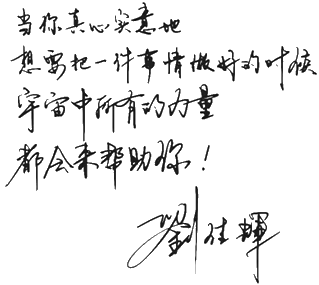 当你真心实意地
想要把一件事情做好的时候
宇宙中所有的力量
都会来帮助你！
劉佳輝